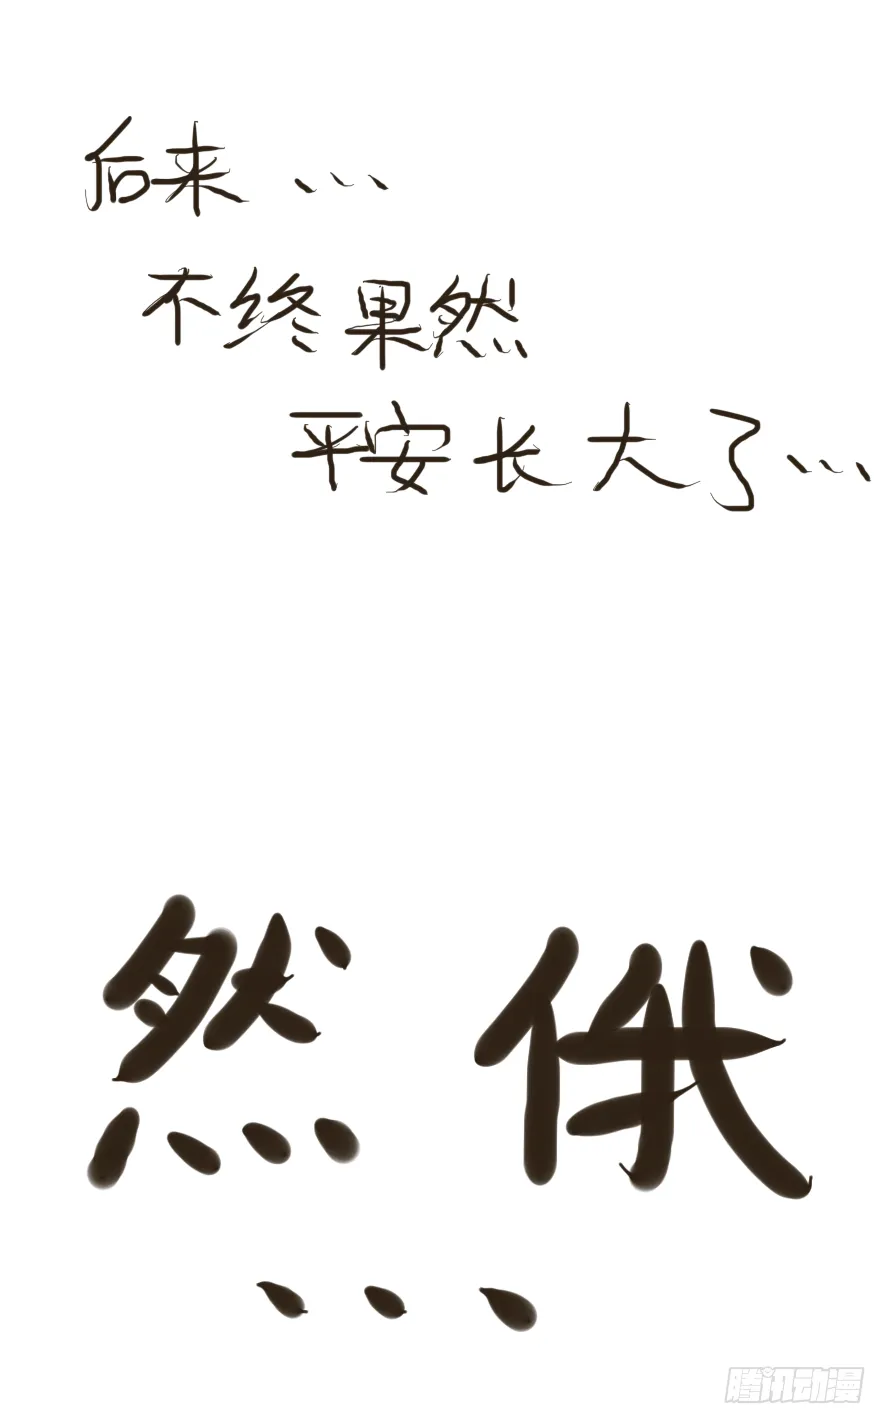 后来...
不终果然
平安长大了...
然俄
...
腾讯动漫